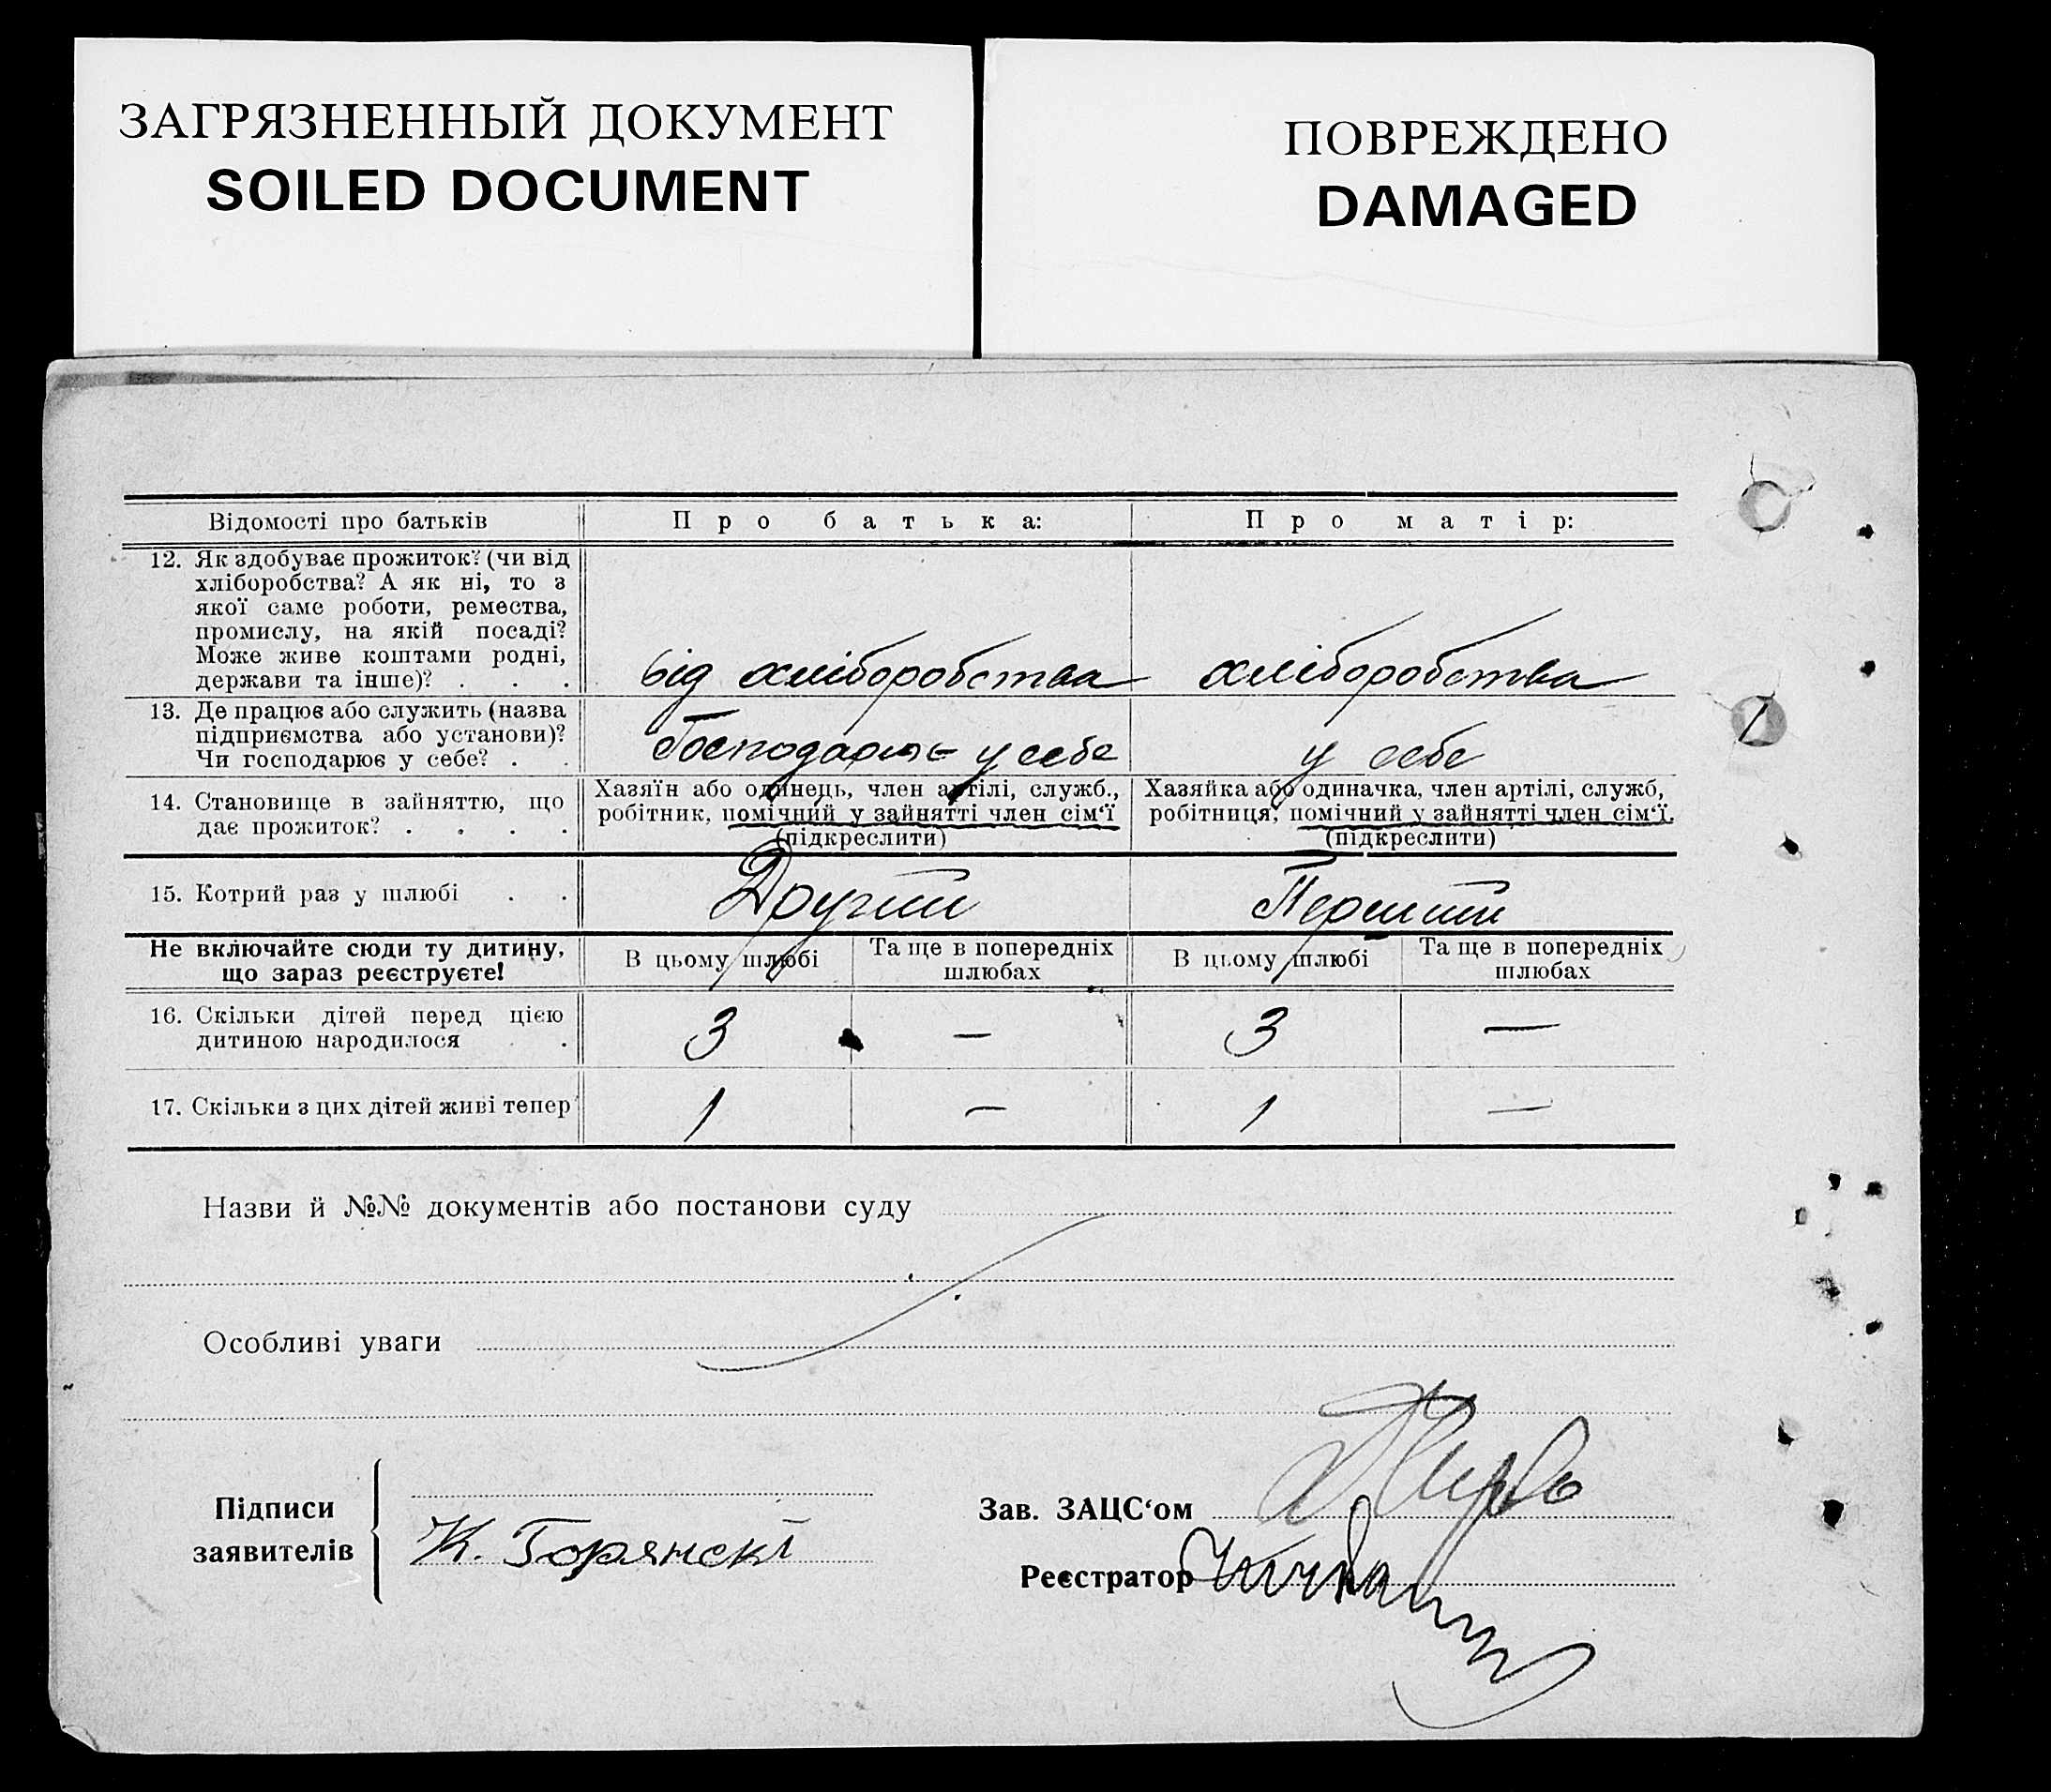 ЗАГРЯЗНЕННЫЙ ДОКУМЕНТ
SOILED DOCUMENT
ПОВРЕЖДЕНО
DAMAGED
Відомості про батьків
Про батька:
Про матір:
12. Як здобуває прожиток? (чи від
хліборобства? А як ні, то з
якої саме роботи, ремества,
промислу, на якій посаді?
Може живе коштами родні,
держави та інше)? . . .
від хліборобства
хліборобства
13. Де працює або служить (назва
підприємства або установи)?
Чи господарює у себе? . .
Господарює у себе
у себе
14. Становище в зайняттю, що
дає прожиток? . . . .
Хазяїн або одинець, член артілі, служб.,
робітник, помічний у зайнятті член сім‘ї
(підкреслити)
Хазяйка або одиначка, член артілі, служб,
робітниця, помічний у зайнятті член сім‘ї.
(підкреслити)
15. Котрий раз у шлюбі . .
Другий
Перший
Не включайте сюди ту дитину,
що зараз реєструєте!
В цьому шлюбі
Та ще в попередніх
шлюбах
В цьому шлюбі
Та ще в попередніх
шлюбах
16. Скільки дітей перед цією
дитиною народилося . .
3
—
3
—
17. Скільки з цих дітей живі тепер
1
—
1
—
Назви й №№ документів або постанови суду
Особливі уваги
Підписи
заявителів
К. Горянскі
Зав. ЗАЦС‘ом
Реєстратор